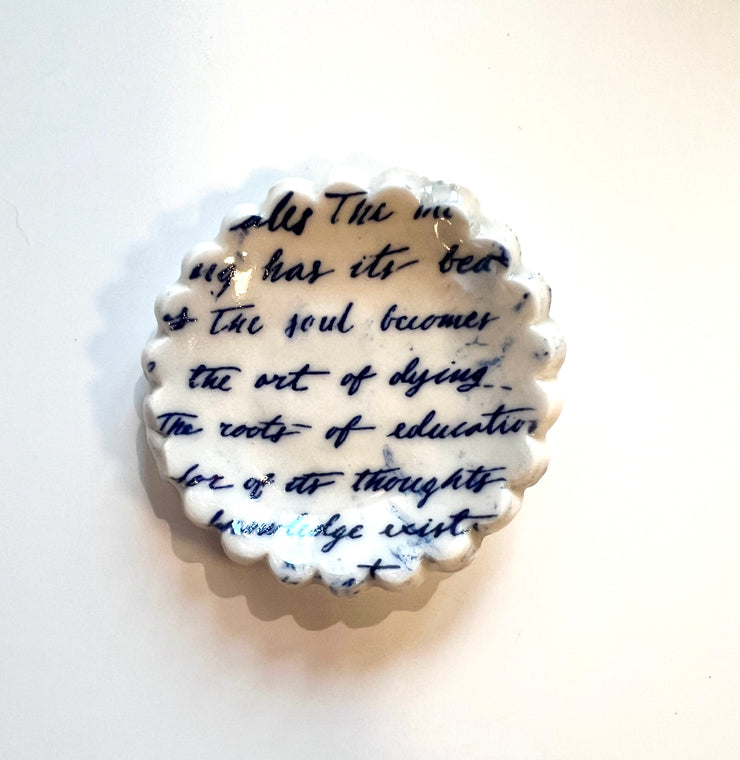 The
has its
The soul becomes
the art of dying
The roots of education
of its thoughts
knowledge exist